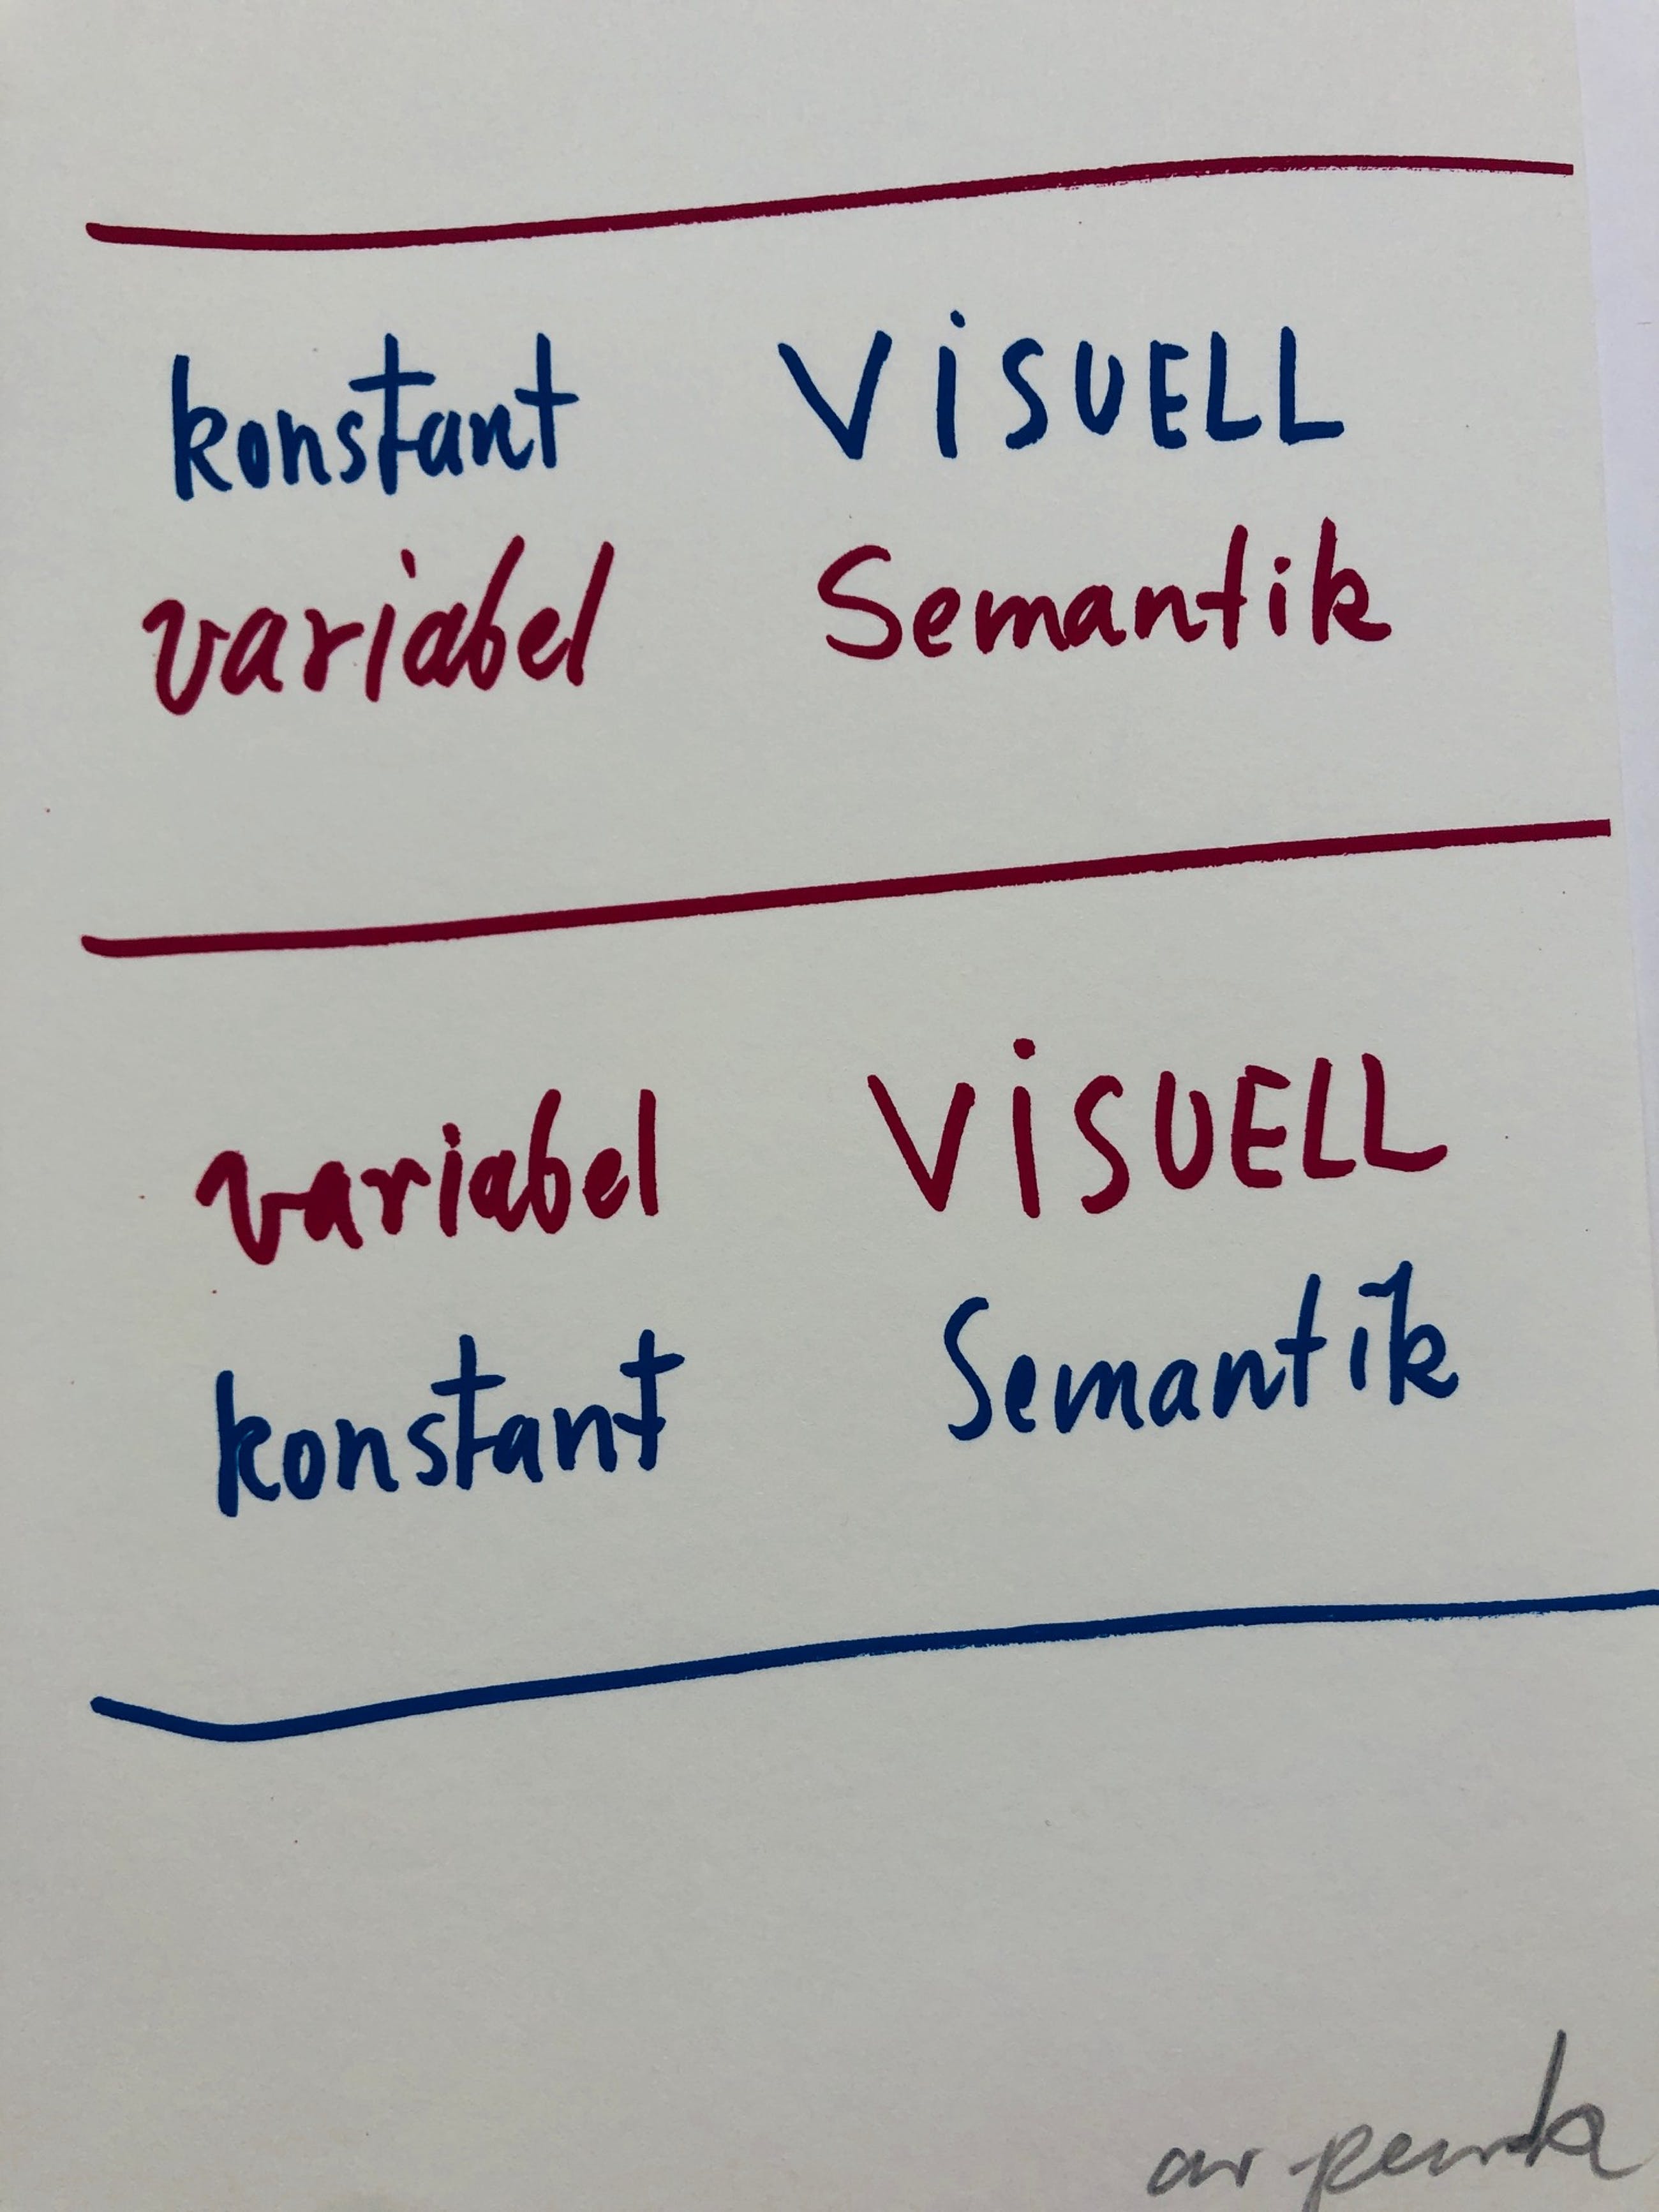 konstant VISUELL
variabel Semantik
variabel VISUELL
konstant Semantik